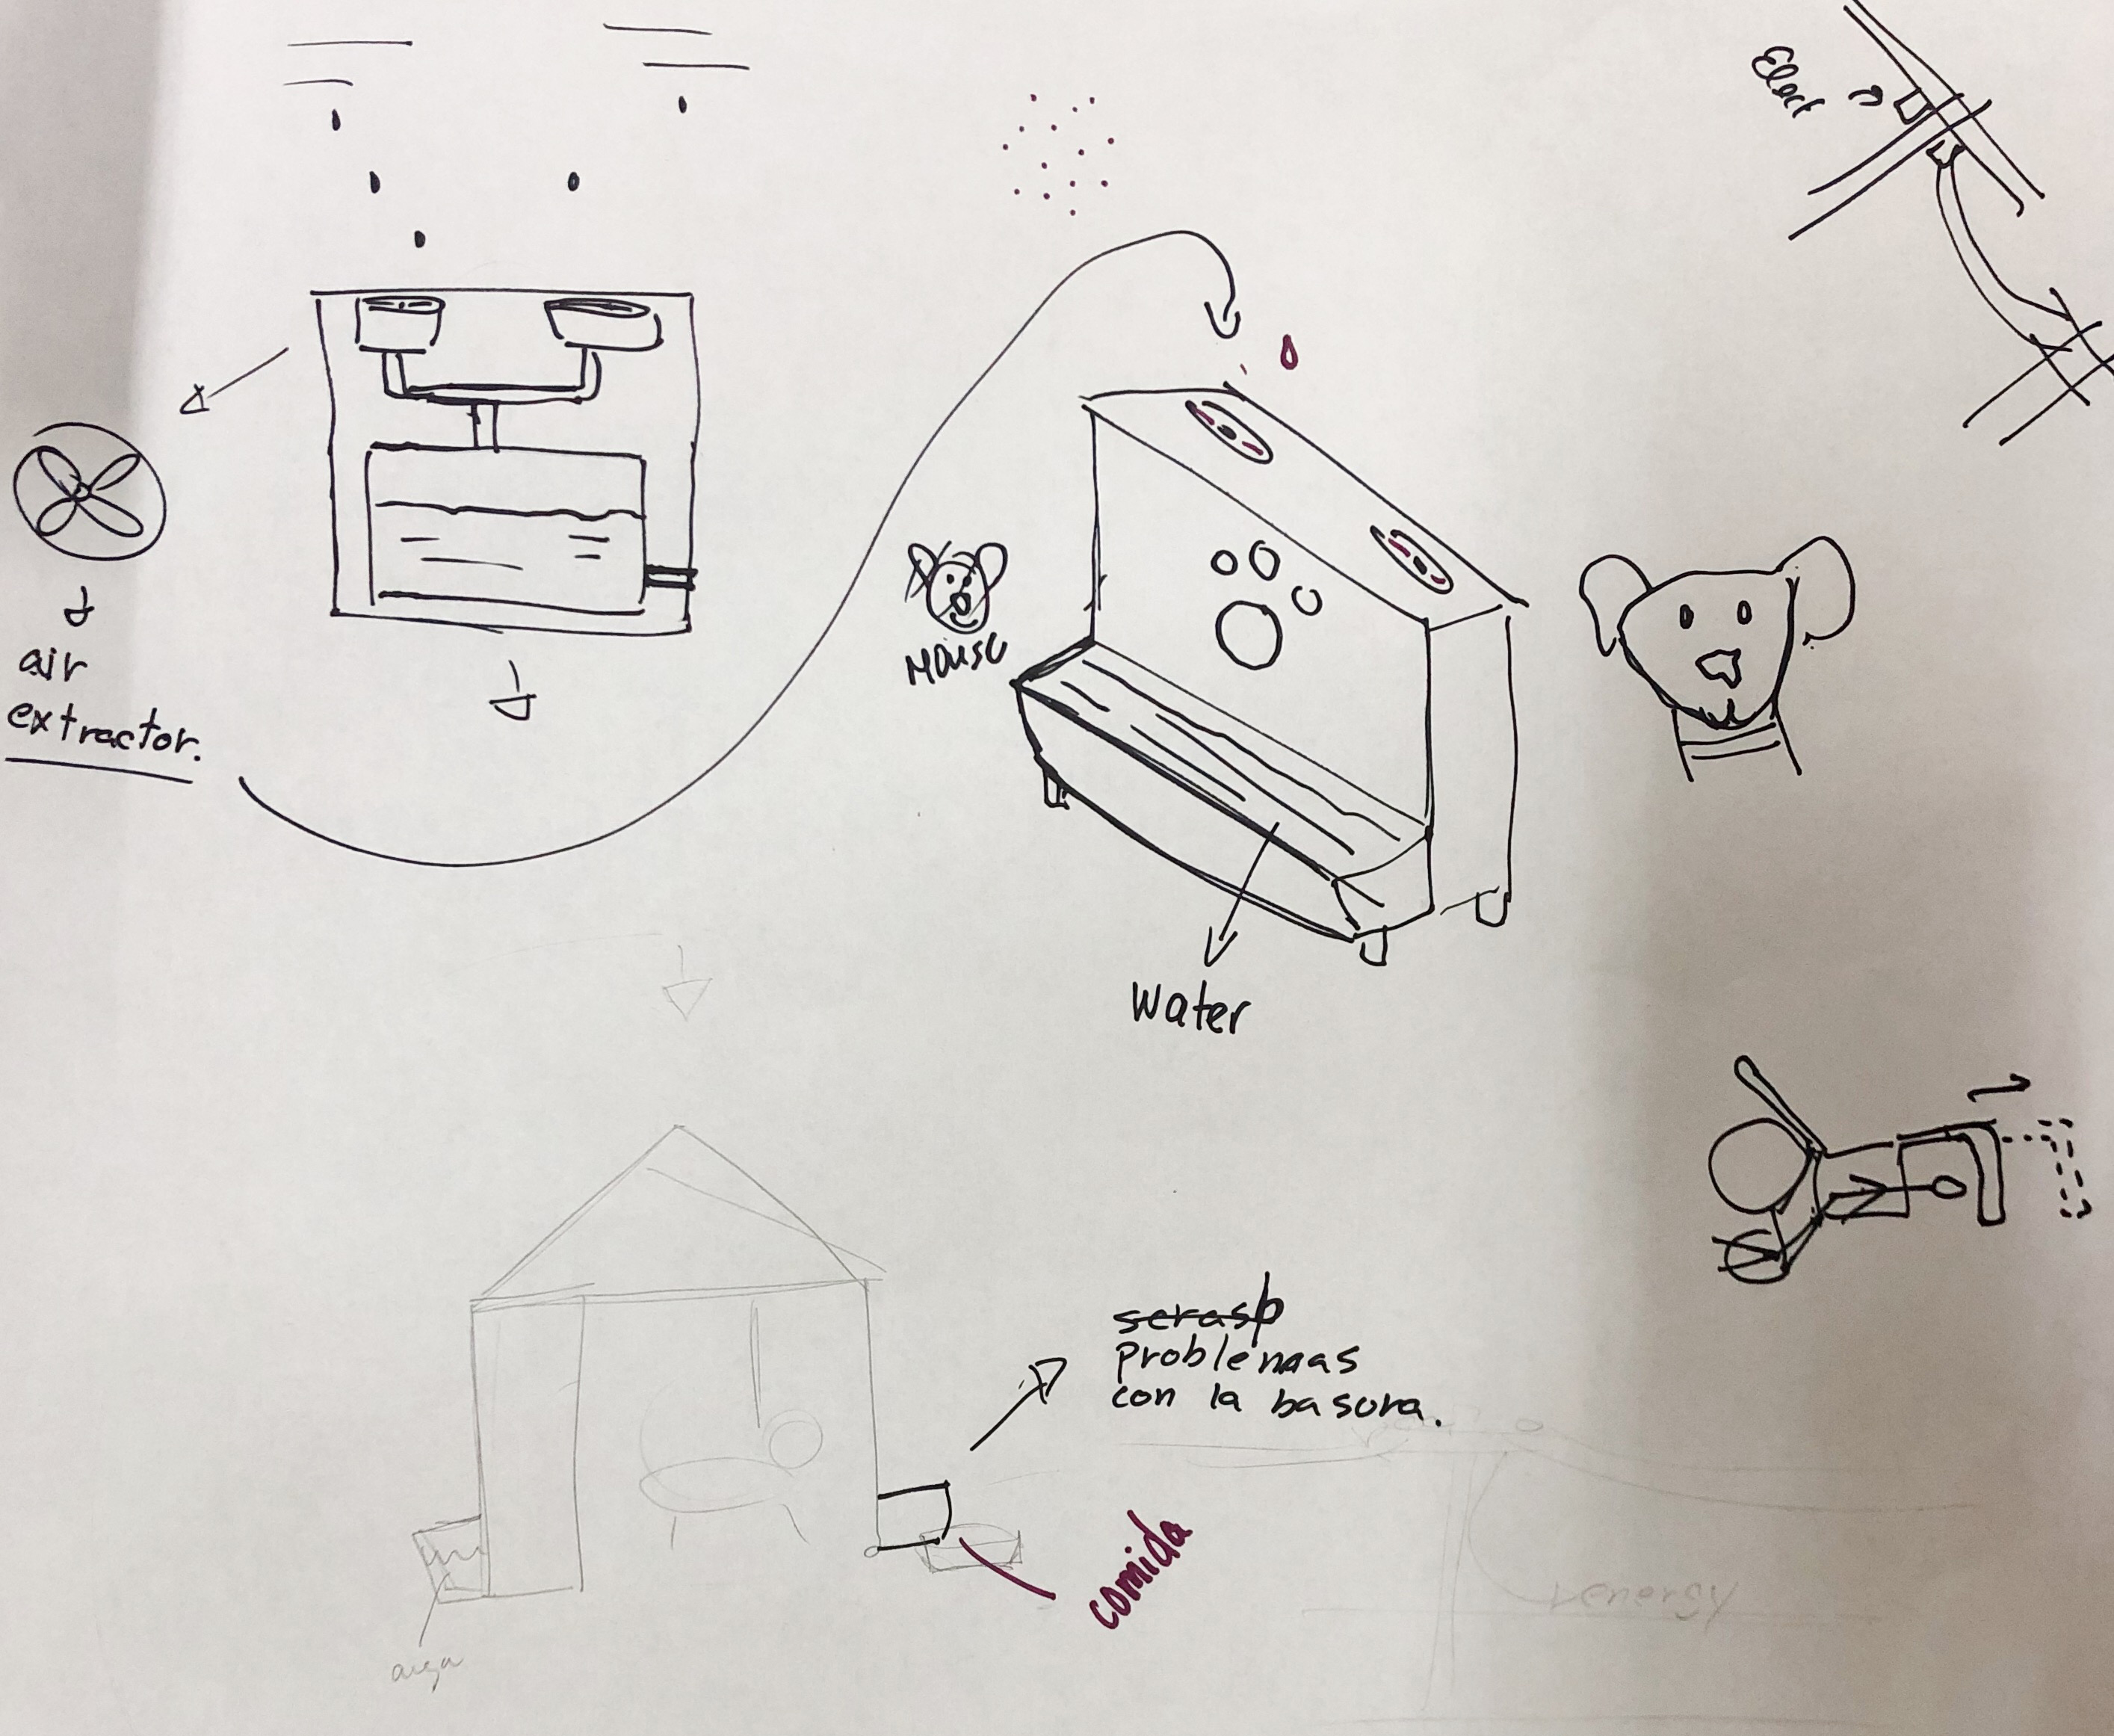 Elect
air
extractor.
Mouse
Water
problemas
con la basura.
comida
energy